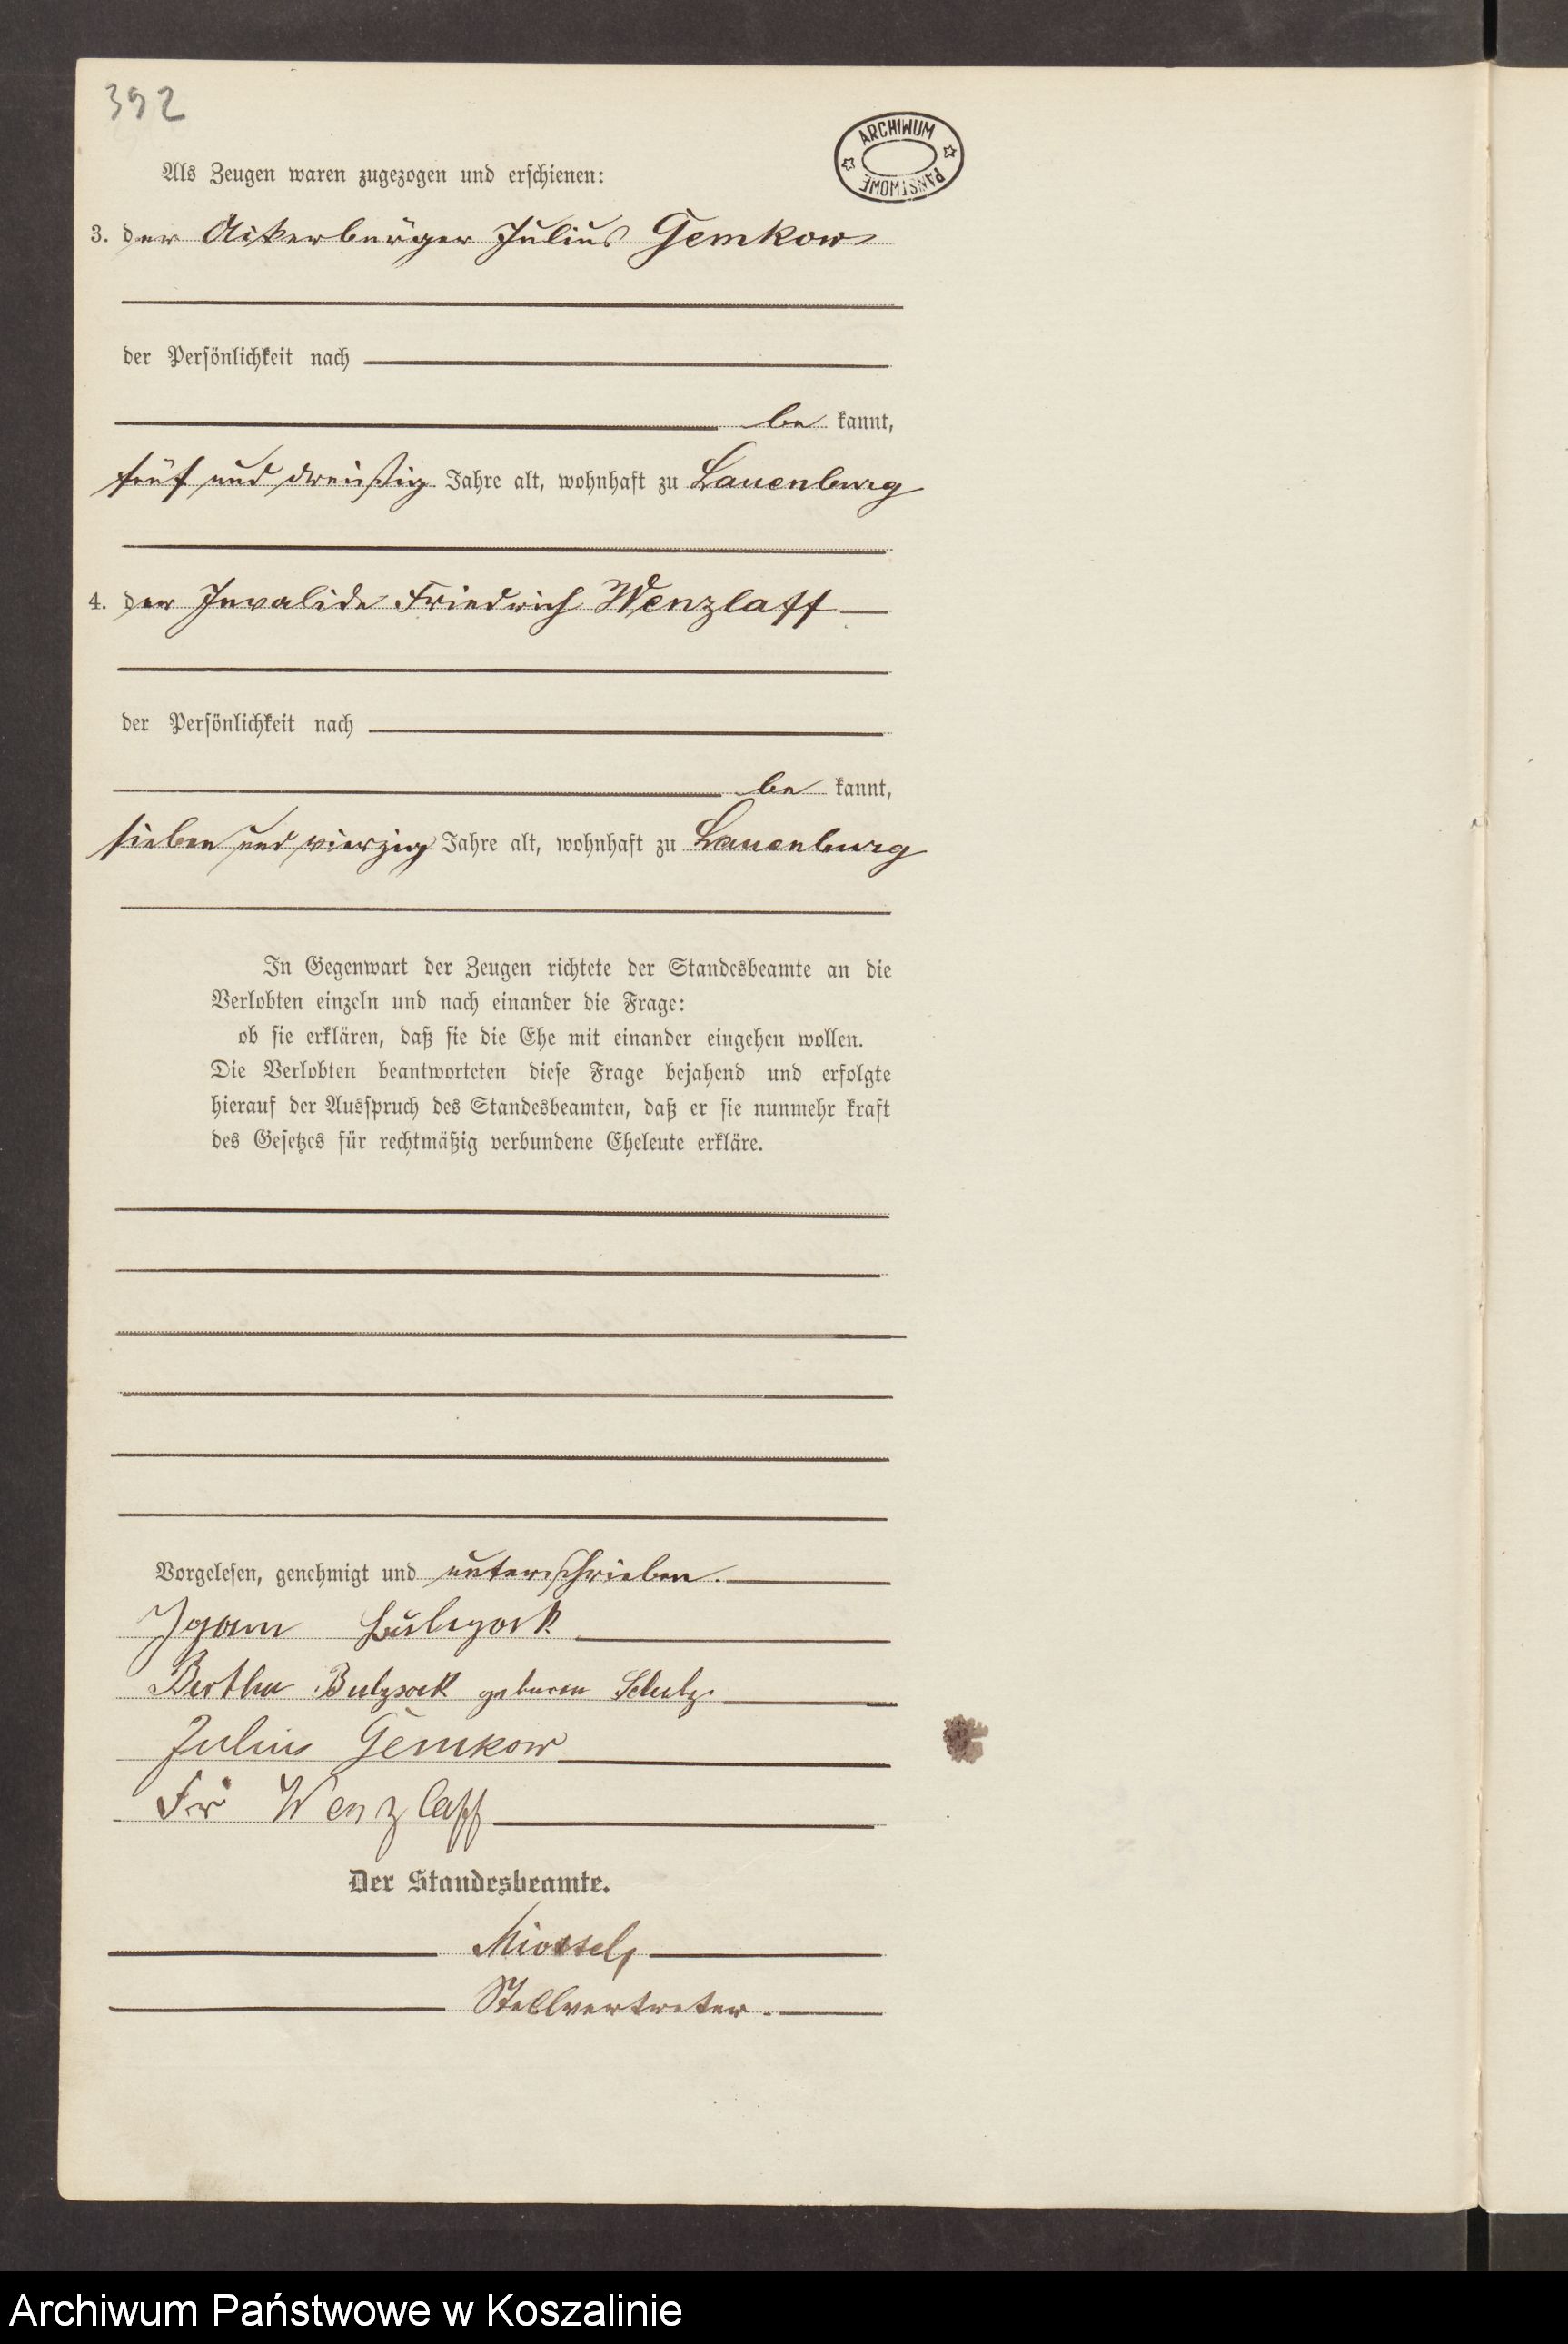 392
ARCHIWUM PAŃSTWOWE
Als Zeugen waren zugezogen und erschienen:
3. der Ackerbürger Julius Gemkow
der Persönlichkeit nach
be kannt,
fünf und dreißig Jahre alt, wohnhaft zu Lauenburg
4. der Invalide Friedrich Wenzlaff
der Persönlichkeit nach
be kannt,
sieben und vierzig Jahre alt, wohnhaft zu Lauenburg
In Gegenwart der Zeugen richtete der Standesbeamte an die
Verlobten einzeln und nach einander die Frage:
ob sie erklären, daß sie die Ehe mit einander eingehen wollen.
Die Verlobten beantworteten diese Frage bejahend und erfolgte
hierauf der Ausspruch des Standesbeamten, daß er sie nunmehr kraft
des Gesetzes für rechtmäßig verbundene Eheleute erkläre.
Vorgelesen, genehmigt und unterschrieben.
Bertha Bulzsack geboren Schulz.
Julius Gemkow
Fr Wenzlaff
Der Standesbeamte.
Stellvertreter.
Archiwum Państwowe w Koszalinie